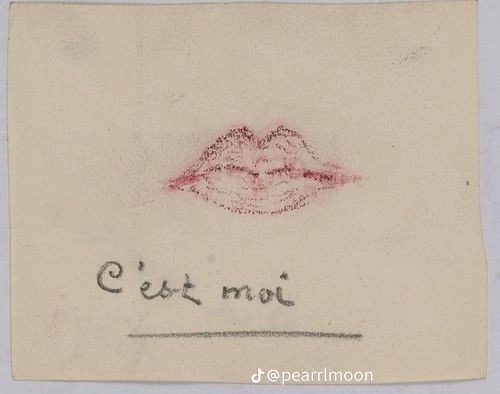 C'est moi
@pearrlmoon